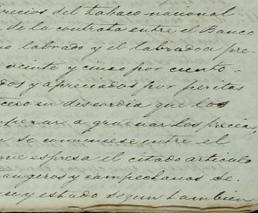 precios del tabaco nacional
de la contrata entre el Banco
no labrado y el labrador pre
veinte y cinco por ciento
dos y apreciados por peritos
tercero en discordia que los
empezar a graduar los precios
se conviniese entre el
que espresa el citado articulo
estado segun tambien